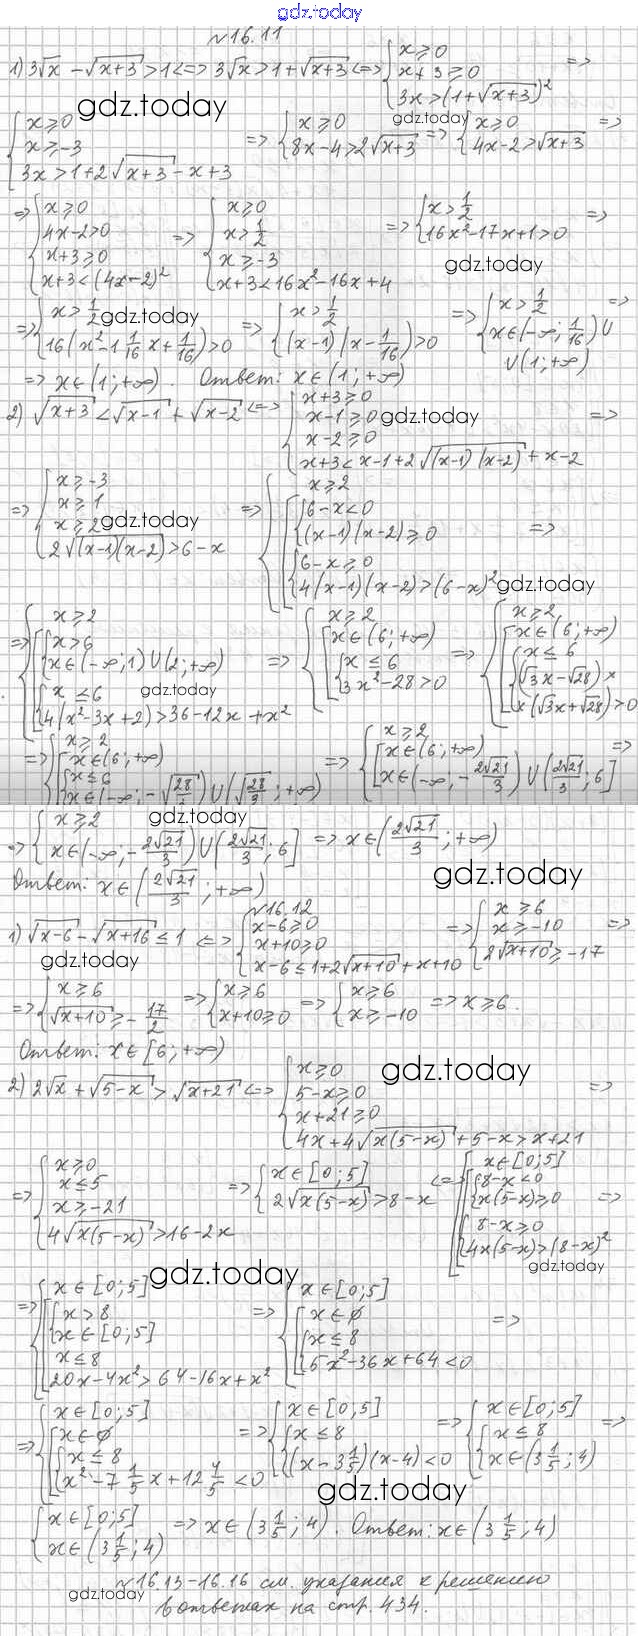 gdz.today
№16.11
1) 3√x - √(x+3) > 1 <=> 3√x > 1 + √(x+3) <=> { x ⩾ 0; x+3 ⩾ 0; 3x > (1+√(x+3))² =>
gdz.today gdz.today
{ x ⩾ 0; x ⩾ -3; 3x > 1+2√(x+3) - x+3 => { x ⩾ 0; 8x-4 > 2√(x+3) => { x ⩾ 0; 4x-2 > √(x+3) =>
=> { x ⩾ 0; 4x-2 > 0; x+3 ⩾ 0; x+3 < (4x-2)² => { x ⩾ 0; x > 1/2; x ⩾ -3; x+3 < 16x²-16x+4 => { x > 1/2; 16x²-17x+1 > 0 =>
gdz.today
=> { x > 1/2; 16(x²-1 1/16 x + 1/16) > 0 => { x > 1/2; (x-1)(x-1/16) > 0 => { x > 1/2; x∈(-∞; 1/16) ∪ ∪ (1; +∞) =>
gdz.today
=> x∈(1; +∞). Ответ: x∈(1; +∞)
2) √(x+3) < √(x-1) + √(x-2) <=> { x+3 ⩾ 0; x-1 ⩾ 0; x-2 ⩾ 0; x+3 < x-1+2√((x-1)(x-2)) + x-2 =>
gdz.today
=> { x ⩾ -3; x ⩾ 1; x ⩾ 2; 2√((x-1)(x-2)) > 6-x => { x ⩾ 2; [ { 6-x < 0; (x-1)(x-2) ⩾ 0; { 6-x ⩾ 0; 4(x-1)(x-2) > (6-x)² =>
gdz.today gdz.today
=> { x ⩾ 2; [ { x > 6; x∈(-∞; 1) ∪ (2; +∞); { x ⩽ 6; 4(x²-3x+2) > 36-12x+x² => { x ⩾ 2; [ x∈(6; +∞); { x ⩽ 6; 3x²-28 > 0 => { x ⩾ 2; [ x∈(6; +∞); { x ⩽ 6; (√3x-√28) × × (√3x+√28) > 0
gdz.today
=> { x ⩾ 2; [ x∈(6; +∞); { x ⩽ 6; x∈(-∞; -√(28/3)) ∪ (√(28/3); +∞) => { x ⩾ 2; [ x∈(6; +∞); x∈(-∞; -2√21/3) ∪ (2√21/3; 6] =>
gdz.today
=> { x ⩾ 2; x∈(-∞; -2√21/3) ∪ (2√21/3; 6] => x∈(2√21/3; +∞)
gdz.today
Ответ: x∈(2√21/3; +∞)
№16.12
1) √(x-6) - √(x+16) ⩽ 1 <=> { x-6 ⩾ 0; x+10 ⩾ 0; x-6 ⩽ 1+2√(x+10) + x+10 => { x ⩾ 6; x ⩾ -10; 2√(x+10) ⩾ -17 =>
gdz.today
=> { x ⩾ 6; √(x+10) ⩾ -17/2 => { x ⩾ 6; x+10 ⩾ 0 => { x ⩾ 6; x ⩾ -10 => x ⩾ 6.
Ответ: x∈[6; +∞)
gdz.today
2) 2√x + √(5-x) > √(x+21) <=> { x ⩾ 0; 5-x ⩾ 0; x+21 ⩾ 0; 4x+4√(x(5-x)) + 5-x > x+21 =>
=> { x ⩾ 0; x ⩽ 5; x ⩾ -21; 4√(x(5-x)) > 16-2x => { x∈[0; 5]; 2√(x(5-x)) > 8-x <=> { x∈[0; 5]; [ { 8-x < 0; x(5-x) ⩾ 0; { 8-x ⩾ 0; 4x(5-x) > (8-x)² =>
gdz.today gdz.today
=> { x∈[0; 5]; [ { x > 8; x∈[0; 5]; x ⩽ 8; 20x-4x² > 64-16x+x² => { x∈[0; 5]; [ x∈∅; { x ⩽ 8; 5x²-36x+64 < 0 =>
=> { x∈[0; 5]; [ x∈∅; { x ⩽ 8; x²-7 1/5 x + 12 4/5 < 0 => { x∈[0; 5]; { x ⩽ 8; (x-3 1/5)(x-4) < 0 => { x∈[0; 5]; { x ⩽ 8; x∈(3 1/5; 4) =>
gdz.today
{ x∈[0; 5]; x∈(3 1/5; 4) => x∈(3 1/5; 4). Ответ: x∈(3 1/5, 4)
№16.13-16.16 см. указания к решению
gdz.today
в ответах на стр. 434.